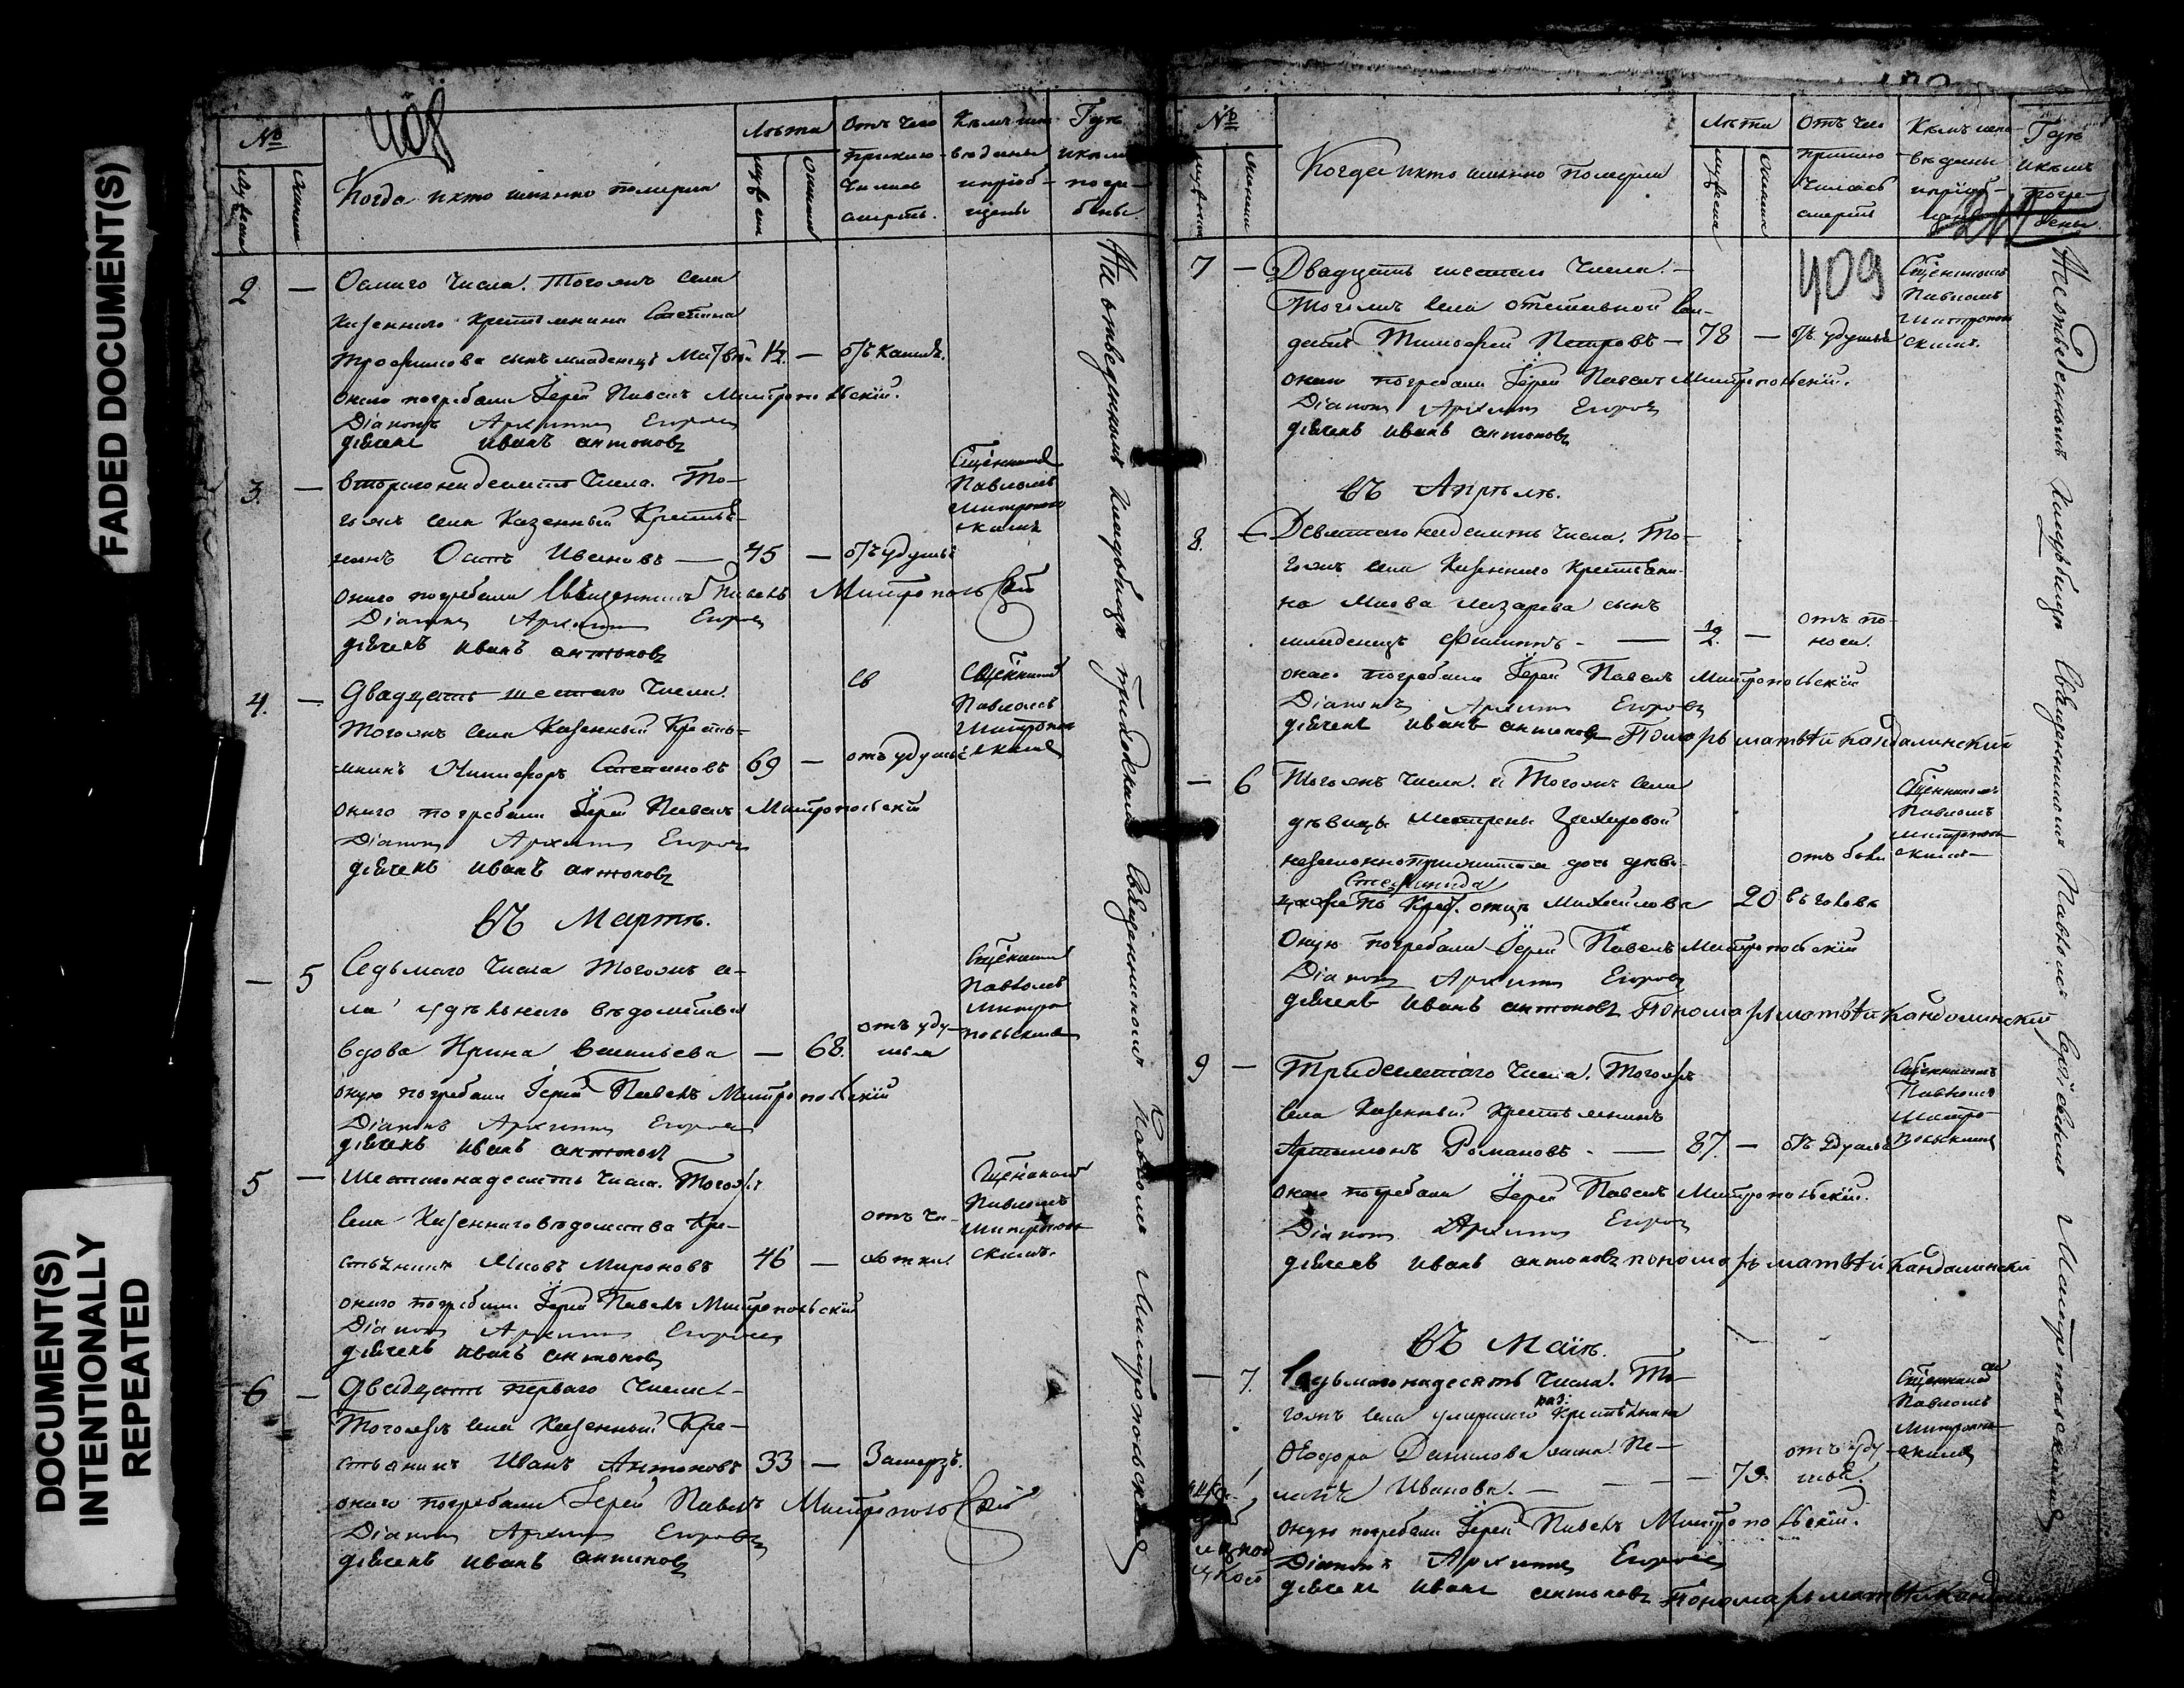 FADED DOCUMENT(S)
DOCUMENT(S)
INTENTIONALLY
REPEATED
408
№
Мужеска
Женска
Когда и кто именно померли
Лѣта
Мужеска
Женска
Отъ чего
приклю-
чилась
смерть.
Кѣмъ испо-
вѣданы
и пріоб-
щены
Гдѣ
и кѣмъ
погре-
бены.
2 — Осмаго числа. Тогожъ села
Казеннаго Крестьянина Степана
Трофимова сынъ младенецъ 1/2. — отъ кашля.
онаго погребали Іерей Павелъ Митропольскій.
Діаконъ Архипъ Егоровъ
дьячекъ иванъ антоновъ
3. — Второгонадесять числа. То-
гожъ села Казенный Крестья-
нинъ Осипъ Ивановъ — 45 — отъ удушья
Сщенникомъ
Павломъ
Митрополь-
скимъ
онаго погребали Священникъ Павелъ Митропольскій
Діаконъ Архипъ Егоровъ
дьячекъ иванъ антоновъ
4. — Двадцать шестаго числа.
Тогожъ села Казенный Кресть-
янинъ Никифоръ Степановъ 69 — отъ удушья
Сщенникомъ
Павломъ
Митрополь-
скимъ
онаго погребали Іерей Павелъ Митропольскій
Діаконъ Архипъ Егоровъ
дьячекъ иванъ антоновъ
въ Мартѣ.
— 5 Седьмаго числа Тогожъ се-
ла удѣльнаго вѣдомства
вдова Ирина Васильева — 68. отъ уду-
шья
Сщенникомъ
Павломъ
Митро-
польскимъ
оную погребали Іерей Павелъ Митропольскій
Діаконъ Архипъ Егоровъ
дьячекъ иванъ антоновъ
5 — Шестагонадесять числа. Тогожъ
села Казеннаго вѣдомства Кре-
стьянинъ Мироновъ 46 — отъ ча-
хотки.
Сщенникомъ
Павломъ
Митрополь-
скимъ.
онаго погребали Іерей Павелъ Митропольскій
Діаконъ Архипъ Егоровъ
дьячекъ иванъ антоновъ
6 — Двадцать перваго числа
Тогожъ села Казенный Кре-
стьянинъ Иванъ Антоновъ 33 — Замерзъ.
онаго погребали Іерей Павелъ Митропольскій
Діаконъ Архипъ Егоровъ
дьячекъ иванъ антоновъ
На отведенномъ кладбищѣ приходскимъ Священникомъ Павломъ Митропольскимъ
№
Мужеска
Женска
Когда и кто именно померли
Лѣта
Мужеска
Женска
Отъ чего
приклю-
чилась
смерть
Кѣмъ испо-
вѣданы
и пріоб-
щены
Гдѣ
и кѣмъ
погре-
бены
409
7 — Двадцать шестаго числа. —
Тогожъ села отставной Сол-
датъ Тимофей Петровъ — 78 — отъ удушья
Сщенникомъ
Павломъ
Митрополь-
скимъ.
онаго погребали Іерей Павелъ Митропольскій.
Діаконъ Архипъ Егоровъ
дьячекъ иванъ антоновъ
въ Апрѣлѣ.
8. — Девятагонадесять числа. То-
гожъ села Казеннаго Крестьяни-
на Лазарева сынъ
младенецъ Филиппъ — 1/2 — отъ по-
носа.
онаго погребали Іерей Павелъ Митропольскій
Діаконъ Архипъ Егоровъ
дьячекъ иванъ антоновъ Понарь матвѣй кандалинскій
— 6 Тогожъ числа. и Тогожъ села
дѣвицы Матрены Захаровой
незаконноприжитая дочь дѣви-
ца Степанида по Крес. отцѣ Михайлова 20 отъ боли
въ головѣ
Сщенникомъ
Павломъ
Митрополь-
скимъ
Оную погребали Іерей Павелъ Митропольскій
Діаконъ Архипъ Егоровъ
дьячекъ иванъ антоновъ Пономарь матвѣй кандалинскій
9 — Тридесятаго числа. Тогожъ
села Казенный Крестьянинъ
Артамонъ Романовъ. — 87. — отъ Удушья
Сщенникомъ
Павломъ
Митро-
польскимъ
онаго погребали Іерей Павелъ Митропольскій.
Діаконъ Архипъ Егоровъ
дьячекъ иванъ антоновъ пономарь матвѣй кандалинскій
въ Маіѣ.
— 7. Седьмагонадесять числа. То-
гожъ села умершаго каз. Крестьянина
Ѳедора Данилова жена Пе-
лагія Иванова. — 79. отъ уду-
шья.
Сщенникомъ
Павломъ
Митрополь-
скимъ
оную погребали Іерей Павелъ Митропольскій.
Діаконъ Архипъ Егоровъ
дьячекъ иванъ антоновъ Пономарь матвѣй
На отведенномъ кладбищѣ Священникомъ Павломъ Митропольскимъ